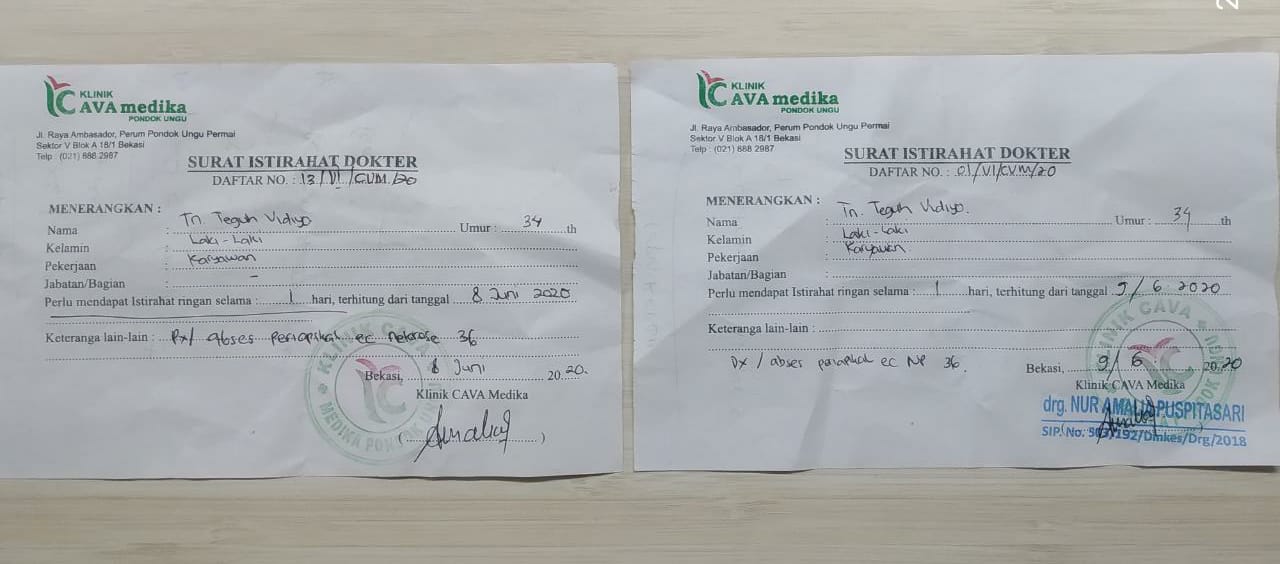 KLINIK
CAVA medika
PONDOK UNGU
Jl. Raya Ambasador, Perum Pondok Ungu Permai
Sektor V Blok A 18/1 Bekasi
Telp : (021) 888 2987
SURAT ISTIRAHAT DOKTER
DAFTAR NO. : 13/VI/CVM/20
MENERANGKAN :
Nama : Tn. Teguh Vidiyo Umur : 34 th
Kelamin : Laki-Laki
Pekerjaan : Karyawan
Jabatan/Bagian : -
Perlu mendapat Istirahat ringan selama : 1 hari, terhitung dari tanggal 8 Juni 2020
Keteranga lain-lain : Dx/ abses periapikal ec nekrose 36
Bekasi, 8 Juni 2020.
Klinik CAVA Medika
KLINIK CAVA MEDIKA PONDOK UNGU
KLINIK
CAVA medika
PONDOK UNGU
Jl. Raya Ambasador, Perum Pondok Ungu Permai
Sektor V Blok A 18/1 Bekasi
Telp : (021) 888 2987
SURAT ISTIRAHAT DOKTER
DAFTAR NO. : 01/VI/CVM/20
MENERANGKAN :
Nama : Tn. Teguh Vidiyo. Umur : 34 th
Kelamin : Laki-Laki
Pekerjaan : Karyawan
Jabatan/Bagian :
Perlu mendapat Istirahat ringan selama : 1 hari, terhitung dari tanggal 9/6 2020
Keteranga lain-lain :
Dx / abses periapikal ec NP 36.
Bekasi, 9/6 2020
Klinik CAVA Medika
drg. NUR AMALIA PUSPITASARI
SIP. No. /Dinkes/Drg/2018